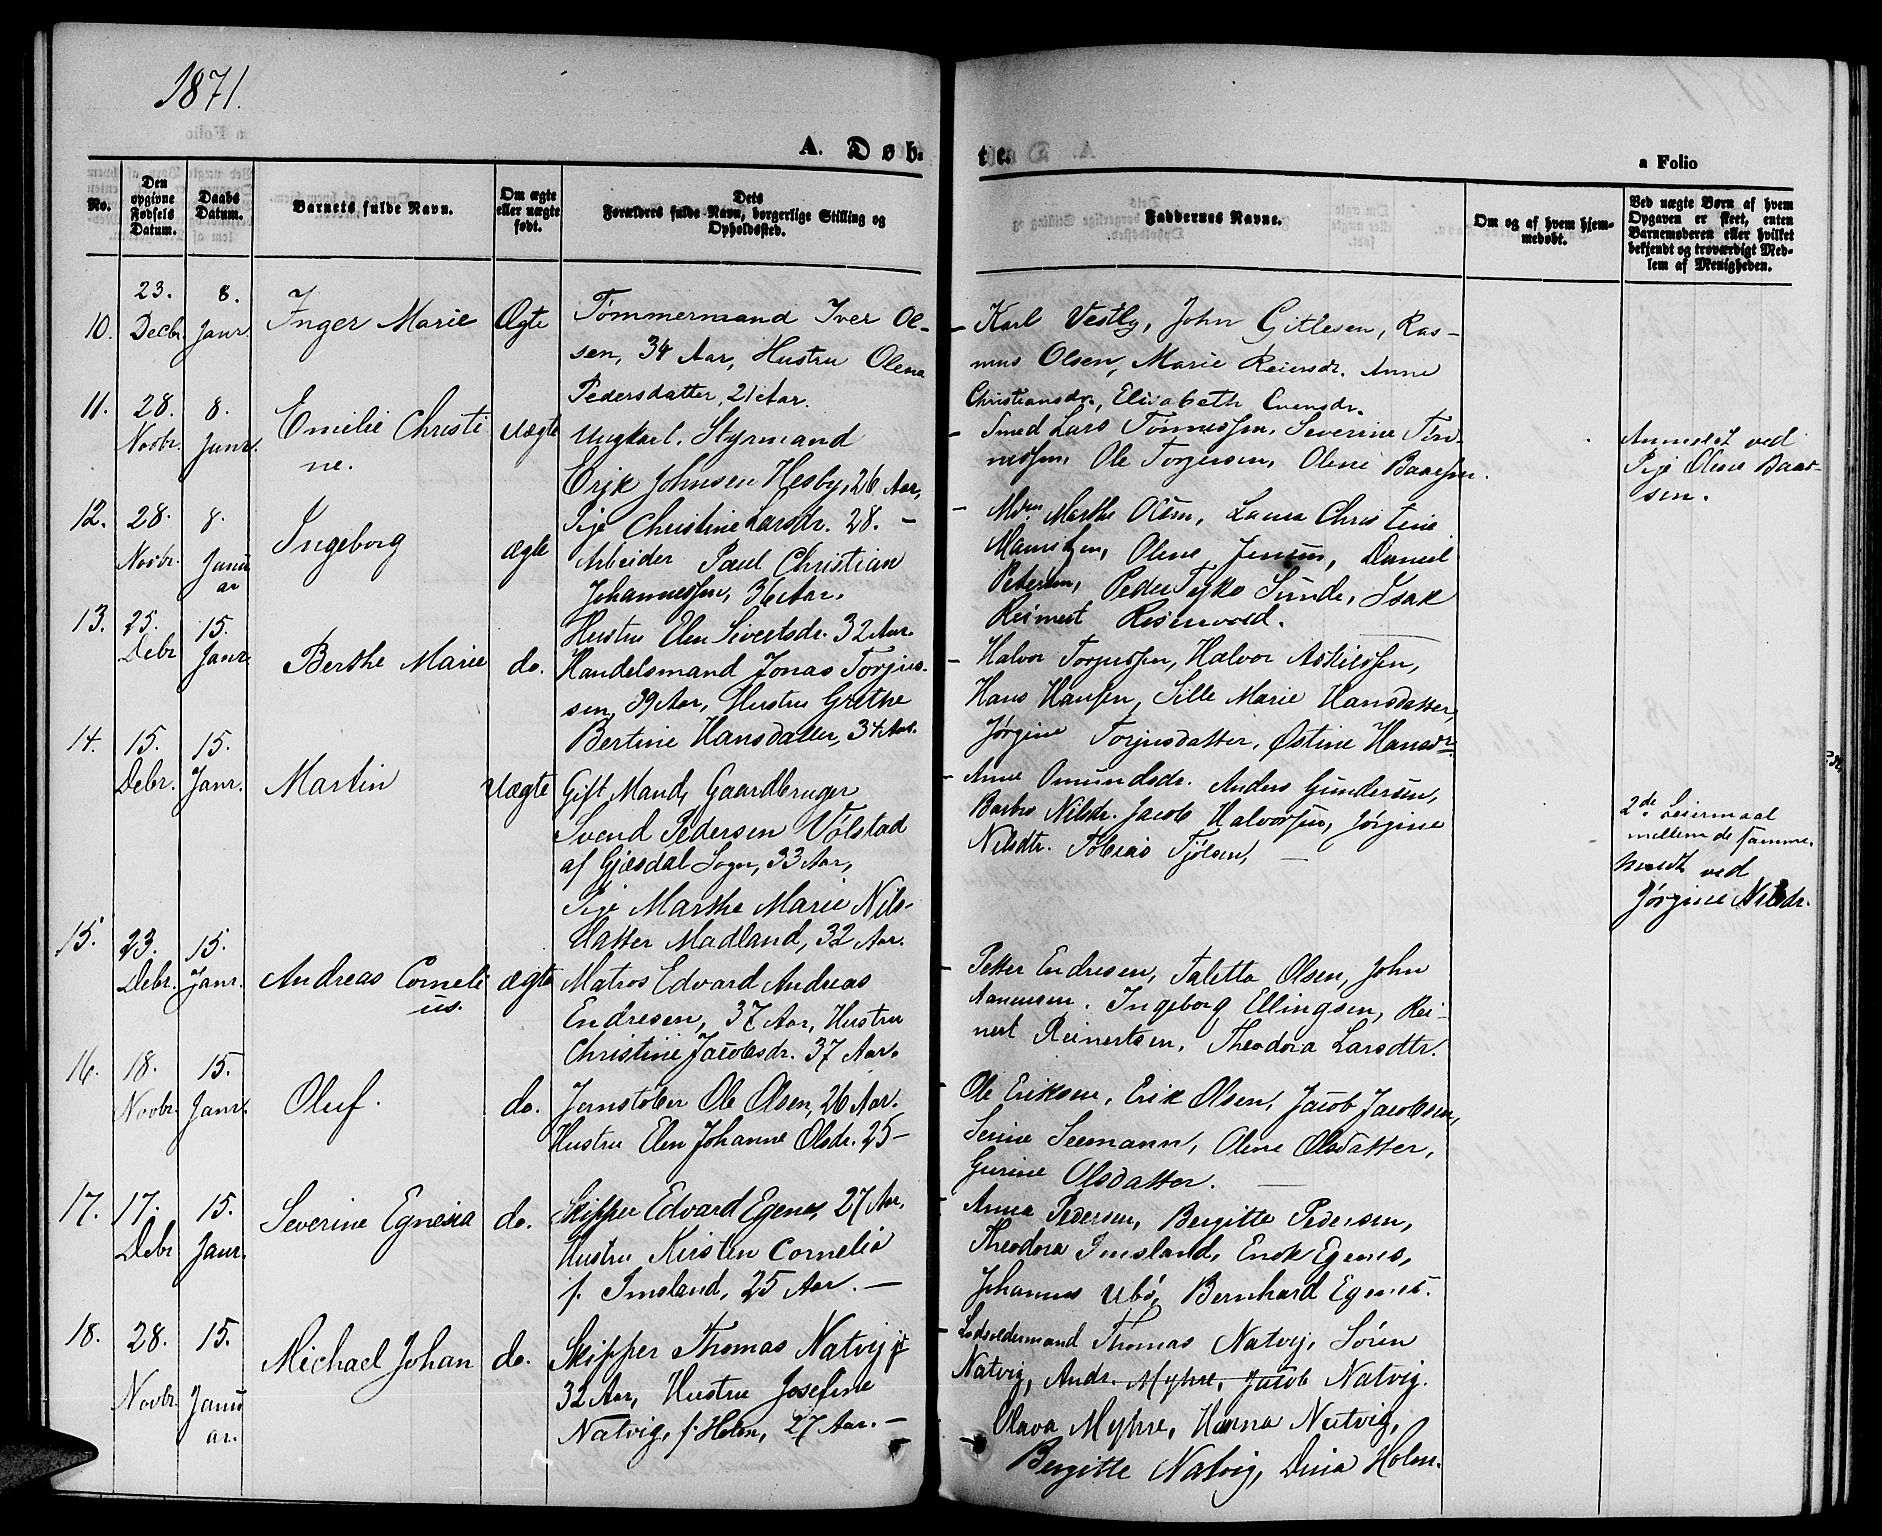 1871.
A. Døb-
te.
a Folio
No.
Den opgivne Fødsels Datum.
Daabs Datum.
Barnets fulde Navn.
Om ægte eller uægte født.
Dets Forældres fulde Navn, borgerlige Stilling og Opholdssted.
Faddernes Navne.
Om og af hvem hjemmedøbt.
Ved uægte Børn af hvem Opgaven er skeet, enten Barnemoderen eller hvilket bekjendt og troværdigt Medlem af Menigheden.
10. 23. Decbr 8. Janr. Inger Marie Ægte
Tømmermand Iver Ol-
sen, 34 Aar, Hustru Olena
Pedersdatter, 21 Aar.
Karl Vestly, John Gitlesen, Ras-
mus Olsen, Marie Reiersdr. Anne
Christiansdr., Elisabeth Evensdr.
11. 28. Novbr. 8. Janr. Emilie Christi
ne. Uægte
Ungkarl. Styrmand
Erik Johnsen Hesby, 26 Aar,
Pige Christine Larsdr. 28. —
Smed Lars Tønnessen, Severine Tøn-
nessen, Ole Torgersen, Olene Baarsen.
Anmeldt ved
Pige Olene Baar-
sen.
12. 28. Novbr. 8. Janu
ar Ingeborg ægte
Arbeider Paul Christian
Johannessen, 36 Aar.
Hustru Elen Sivertsdr. 32 Aar.
Mdm. Marthe Olsen, Laura Christine
Mauritzen, Olene Jensen, Daniel
Petersen, Peder Tyko Sunde, Isak
Reimert Riservold.
13. 25. Debr 15. Janr. Berthe Marie do.
Handelsmand Jonas Torjus-
sen, 39 Aar, Hustru Grethe
Bertine Hansdatter, 34 Aar.
Halvor Torjussen, Halvor Askildsen,
Hans Hansen, Sille Marie Hansdatter,
Jørgine Torjusdatter, Østine Hansdr.
14. 15. Debr. 15. Janr. Martin Uægte
Gift Mand, Gaardbruger
Svend Pedersen Vølstad
af Gjesdal Sogn, 33 Aar,
Pige Marthe Marie Nils-
datter Madland, 32 Aar.
Anne Omundsdr. Anders Gundersen,
Barbro Nilsdr. Jacob Halvorsen, Jørgine
Nilsdtr. Tobias Tjølsen, —
2de Leiermaal
mellem de samme.
Meldt ved
Jørgine Nilsdr.
15. 23. Debr. 15. Janr. Andreas Corneli
us. ægte
Matros Edvard Andreas
Endresen, 37 Aar, Hustru
Christine Jacobsdr. 37 Aar.
Petter Endresen, Taletta Olsen, John
Aanensen, Ingeborg Ellingsen, Rei-
nert Reinertsen, Theodora Larsdtr.
16. 18. Novbr. 15. Janr. Oluf. do.
Jernstøber Ole Olsen, 26 Aar.
Hustru Elen Johanne Olsdr. 25 —
Ole Eriksen, Erik Olsen, Jacob Jacobsen,
Serine Seemann, Olene Olsdatter,
Gurine Olsdatter. —
17. 17. Debr 15. Janr. Severine Egnesia do.
Skipper Edvard Egenes, 27 Aar,
Hustru Kirsten Cornelia
f. Imsland, 25 Aar. —
Anna Pedersen, Bergitte Pedersen,
Theodora Imsland, Enok Egenes,
Johannes Ubø, Bernhard Egenes.
18. 28. Novbr. 15. Janu
ar. Michael Johan do.
Skipper Thomas Natvig jr
32 Aar, Hustru Josefine
Natvig, f. Holm, 27 Aar. —
Lodsoldermand Thomas Natvig, Søren
Natvig, Andr. Myhre, Jacob Natvig.
Olava Myhre, Hanna Natvig,
Bergitte Natvig, Dina Holm.